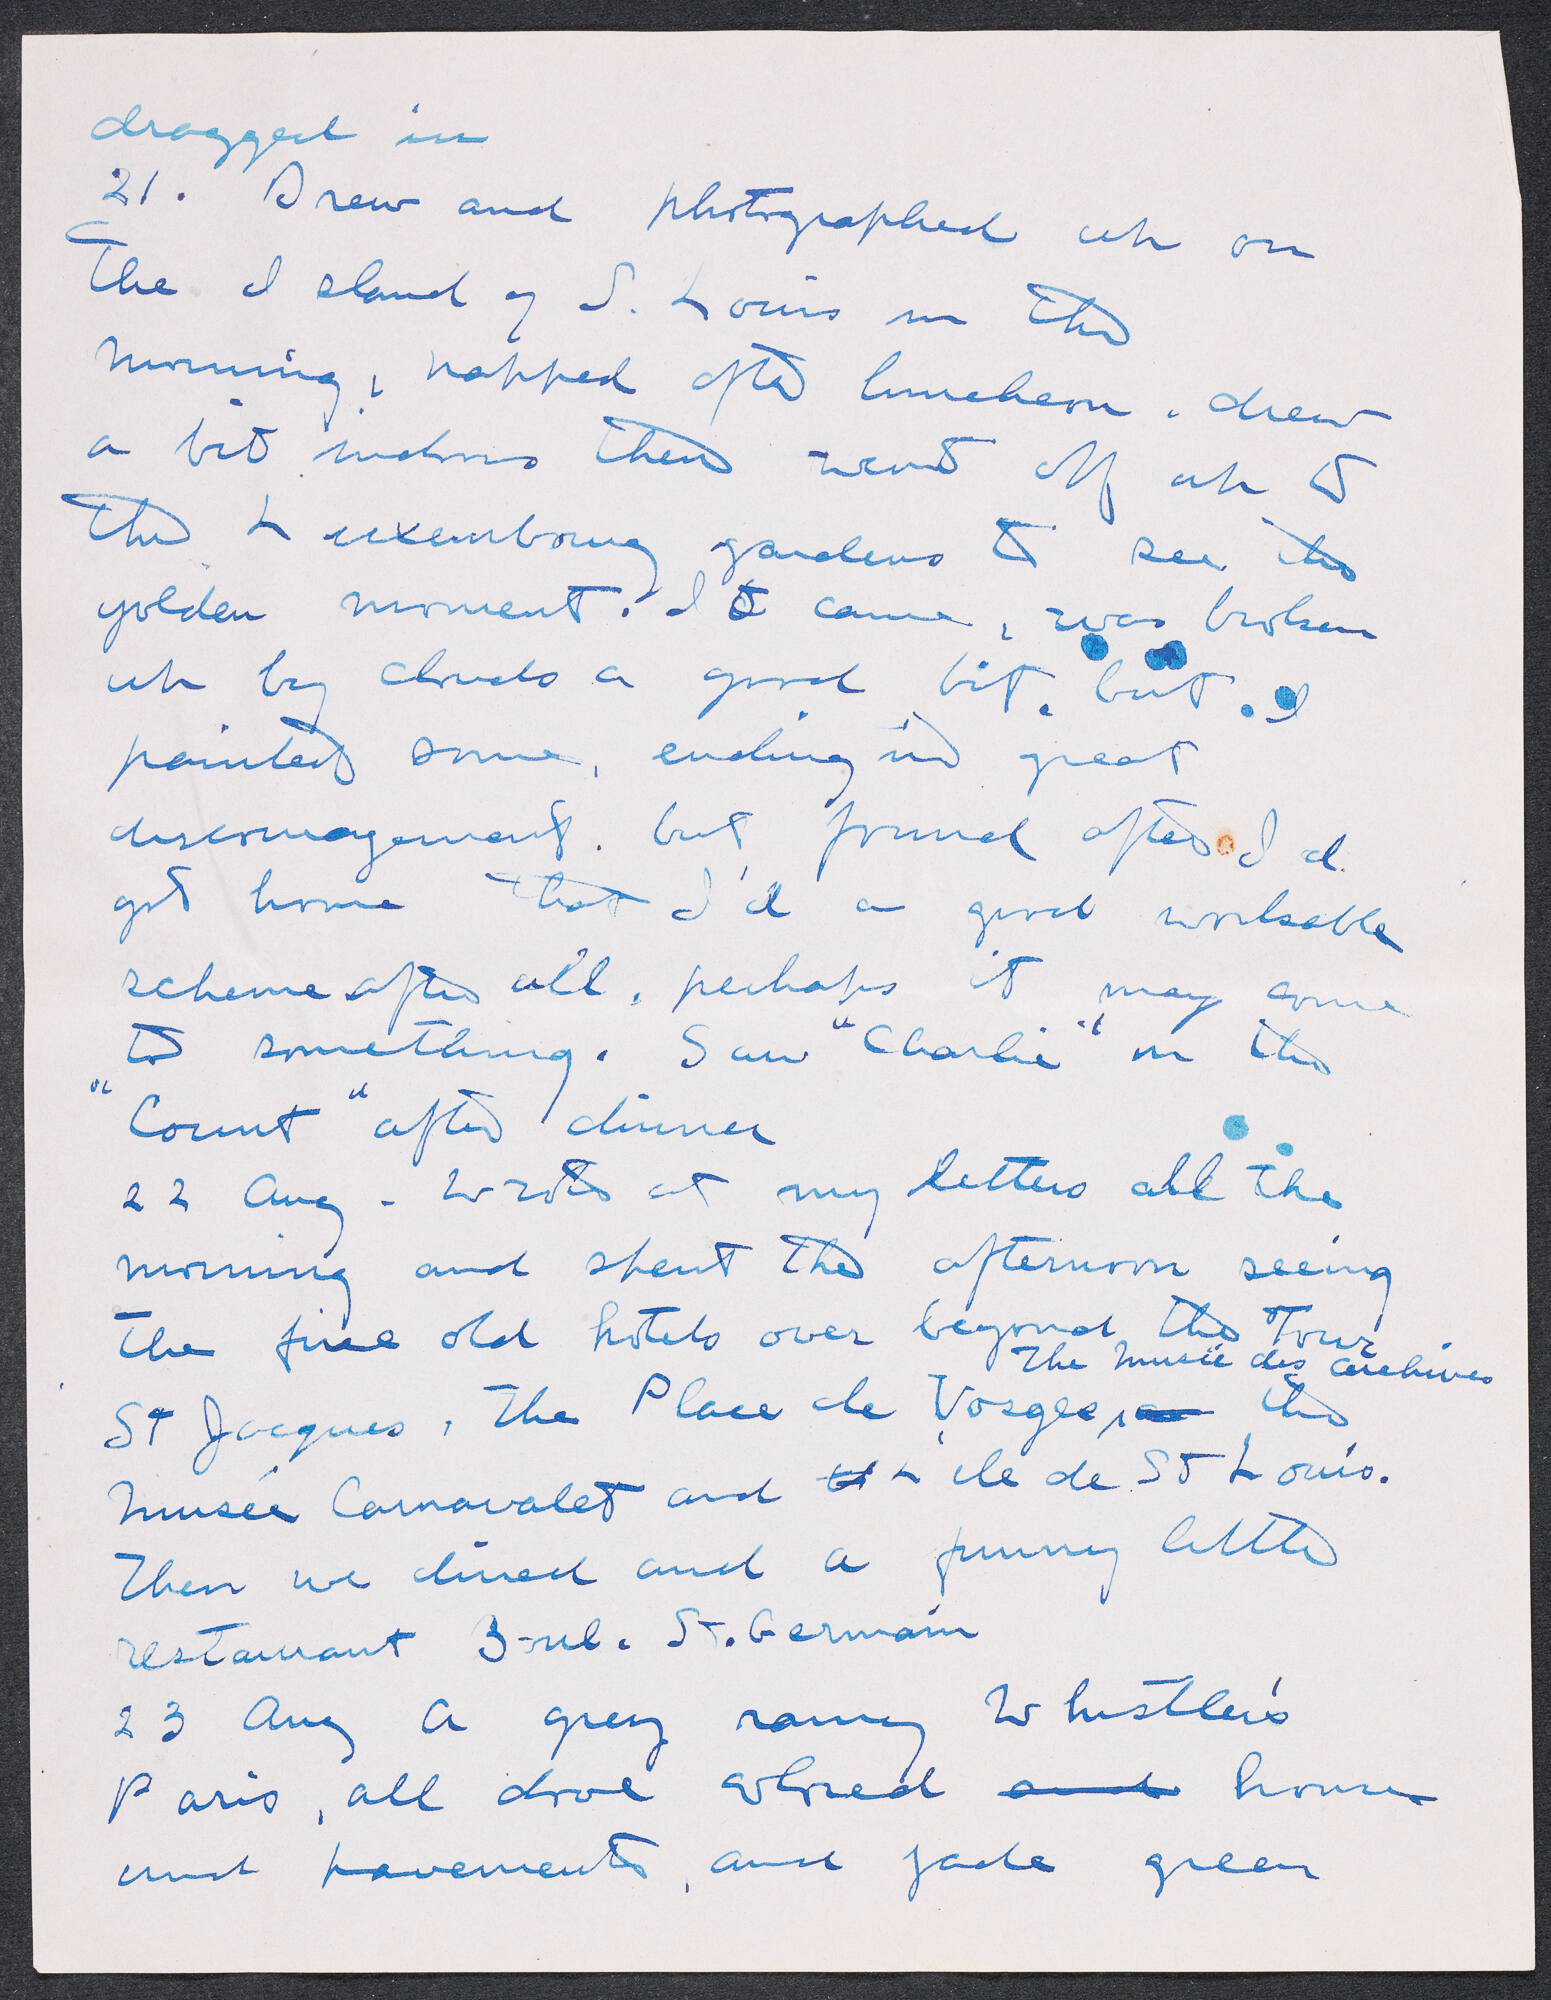 dragged in
21. Drew and photographed up on
the Island of S. Louis in the
morning, napped after luncheon, drew
a bit indoors then went off up to
the Luxembourg gardens to see the
golden moment. It came, was broken
up by clouds a good bit, but. I
painted some, ending in great
discouragement, but found after I'd
got home that I'd a good workable
scheme after all, perhaps it may come
to something. Saw "Charlie" in the
"Count" after dinner
22 Aug - Wrote at my letters all the
morning and spent the afternoon seeing
the fine old hotels over beyond the Tour
The Musée des archives
St Jacques, the Place de Vosges, the
Musée Carnavalet and L'ile de St Louis.
Then we dined and a funny little
restaurant Boul. St. Germain
23 Aug A grey rainy Whistler's
Paris, all dove colored and houses
and pavements, and jade green